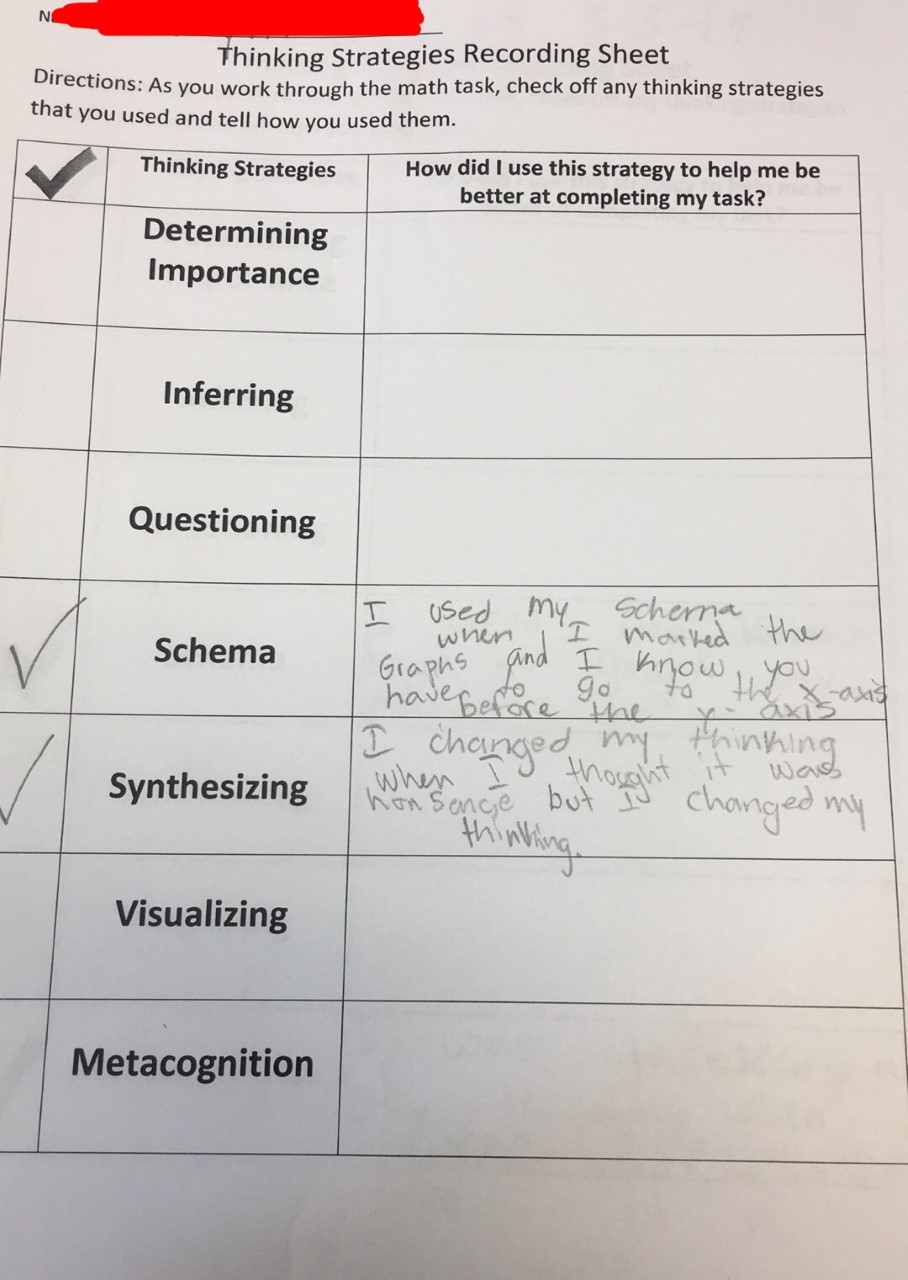 N
Thinking Strategies Recording Sheet
Directions: As you work through the math task, check off any thinking strategies
that you used and tell how you used them.
Thinking Strategies
How did I use this strategy to help me be
better at completing my task?
Determining
Importance
Inferring
Questioning
Schema
I used my Schema
when I marked the
Graphs and I know you
have to go to the x-axis
before the y-axis
Synthesizing
I changed my thinking
when I thought it was
non Sense but I changed my
thinking.
Visualizing
Metacognition